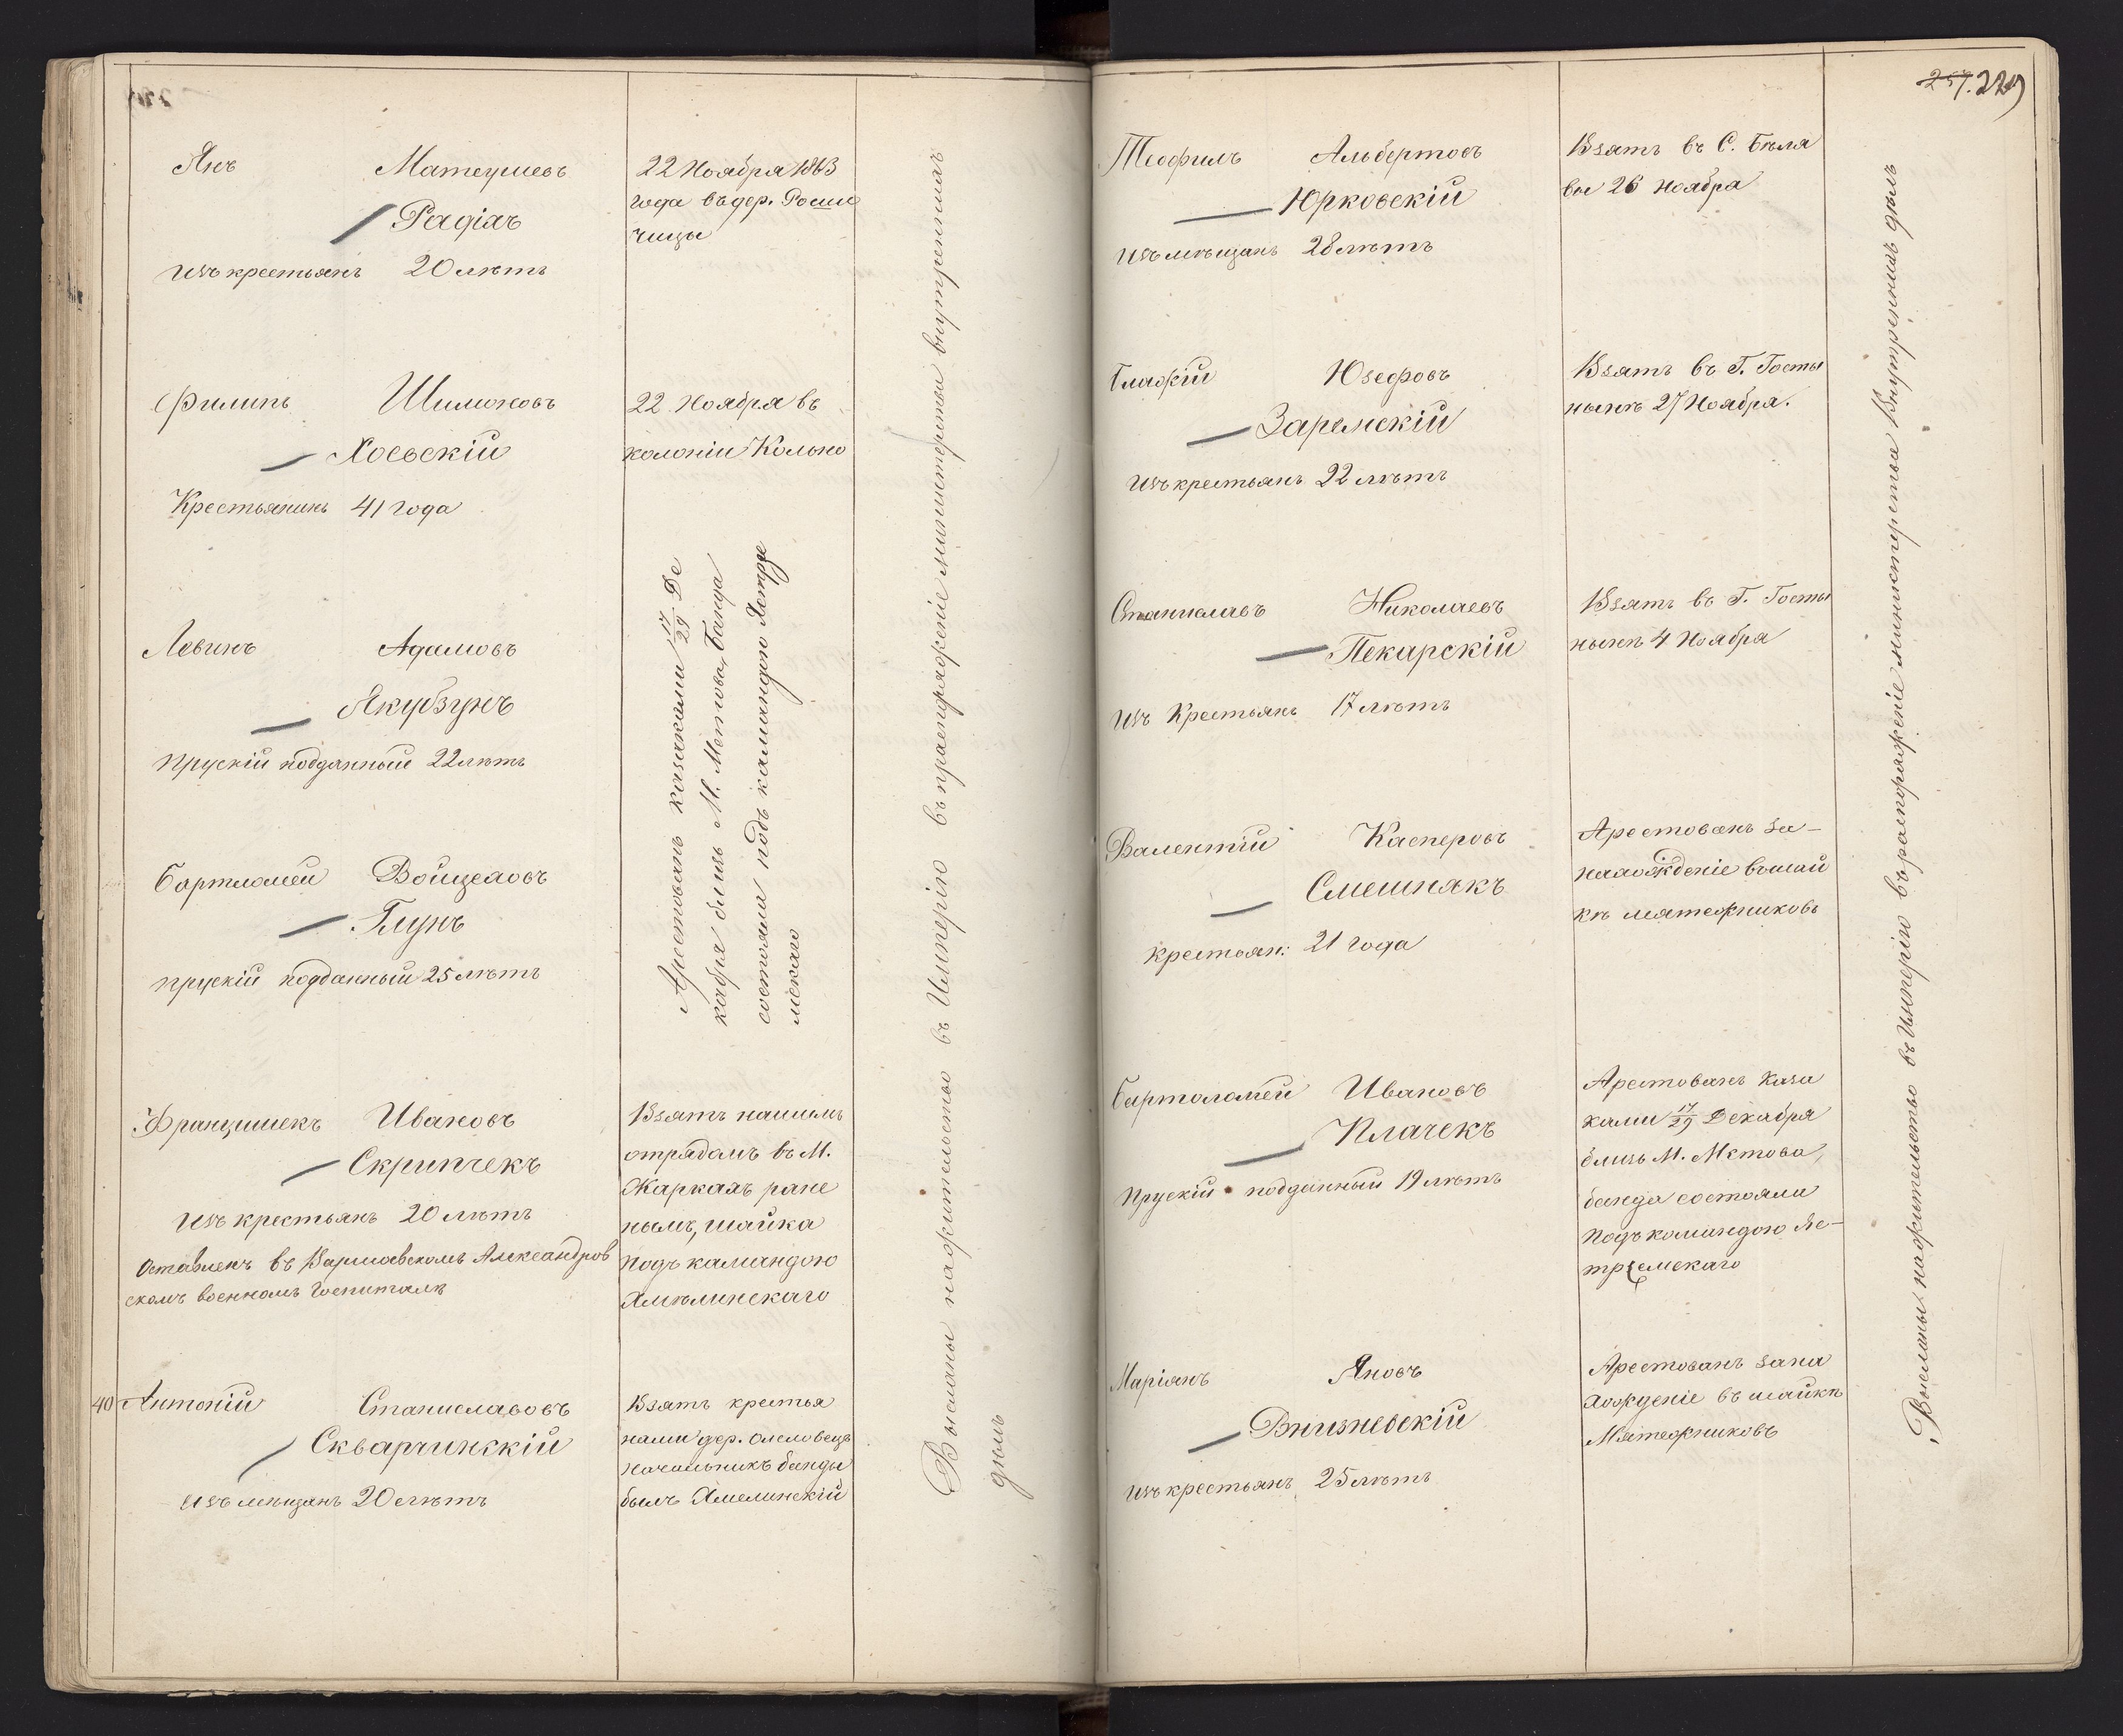 Янъ Матеушевъ
Радіахъ
Изъ крестьянъ 20 лѣтъ
22 Ноября 1863
года въ дер.
чицы
Филипъ Шимоновъ
Хоевскій
Крестьянинъ 41 года
22 Ноября въ
колоніи Кольно
Левинъ Адамовъ
Якубзунъ
Прускій подданный 22 лѣтъ
Бартломей Войцеховъ
Глунъ
прускій подданный 25 лѣтъ
Арестованъ казаками 17/29 Де
кабря близь М. Мстова, Банда
состояла подъ камандою Ястрже
мскаго
Францишекъ Ивановъ
Скрипчекъ
Изъ крестьянъ 20 лѣтъ
Оставленъ въ Варшавскомъ Александров
скомъ военномъ Госпиталѣ
Взятъ нашимъ
отрядомъ въ М.
Жаркахъ ране
нымъ, шайка
подъ камандою
Хмѣлинскаго
40 Антоній Станиславовъ
Скварчинскій
Изъ мѣщанъ 20 лѣтъ
Взятъ крестья
нами дер.
Начальникъ банды
былъ Хмелинскій
Высланы на жительство въ Имперію въ праспряженіе министерства внутреннихъ
дѣлъ
257. 229
Теофилъ Альбертовъ
Юрковскій
Изъ мѣщанъ 28 лѣтъ
Взятъ въ С. Бѣля
вы 26 Ноября
Юзефовъ
Заремскій
Изъ крестьянъ 22 лѣтъ
Взятъ въ Г. Госты
нынѣ 27 Ноября.
Станиславъ Николаевъ
Пекарскій
Изъ Крестьянъ 17 лѣтъ
Взятъ въ Г. Госты
нынѣ 4 Ноября
Валентій Касперовъ
Смешнякъ
крестьян: 21 года
Арестованъ за-
нахожденіе въ шай
кѣ мятежниковъ
Бартоломей Ивановъ
Плачекъ
Прускій подданный 19 лѣтъ
Арестованъ каза
ками 17/29 Декабря
близь М. Мстова,
банда состояла
подъ командою Яс-
трземскаго
Маріянъ Яновъ
Внизневскій
Изъ крестьянъ 25 лѣтъ
Арестованъ зана
хожденіе въ шайкѣ
Мятежниковъ
Высланы на жительство въ Имперію въ распоряженіе министерства Внутреннихъ дѣлъ